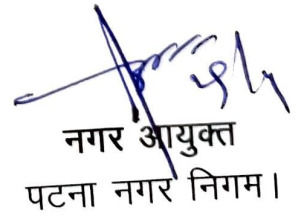 नगर आयुक्त
पटना नगर निगम।